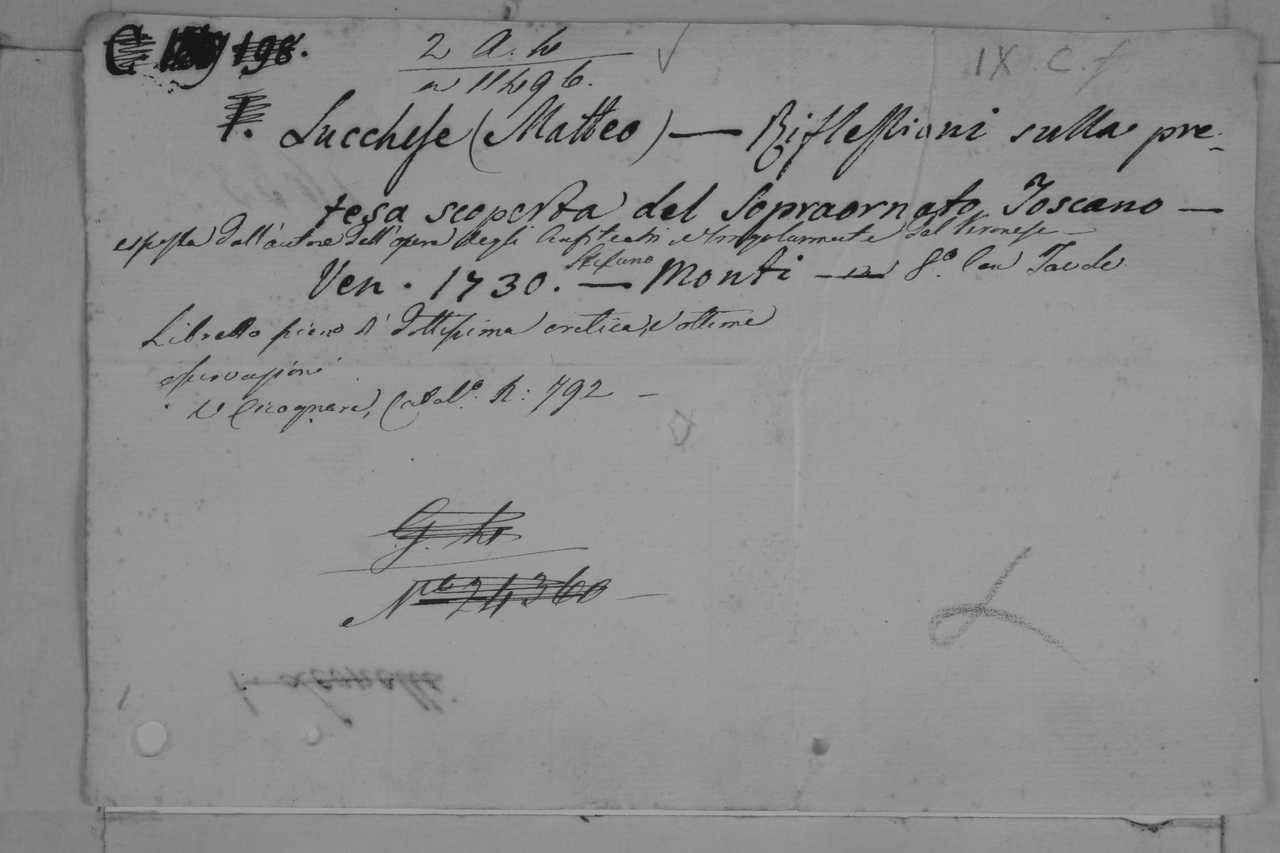 2 A. h
n 11496.
IX C. f
Lucchese (Matteo) — Riflessioni sulla pre-
tesa scoperta del Sopraornato Toscano —
esposta dall'autore dell'opera degli Anfiteatri e singolarmente del Veronese —
Ven. 1730. — Stefano Monti — in 8.º Con Tavole
Libretto pieno di dottissima critica, e ottime
osservazioni
V. Cicognara, Catal.º N: 792 —
G. h
N.º 24360 —
L